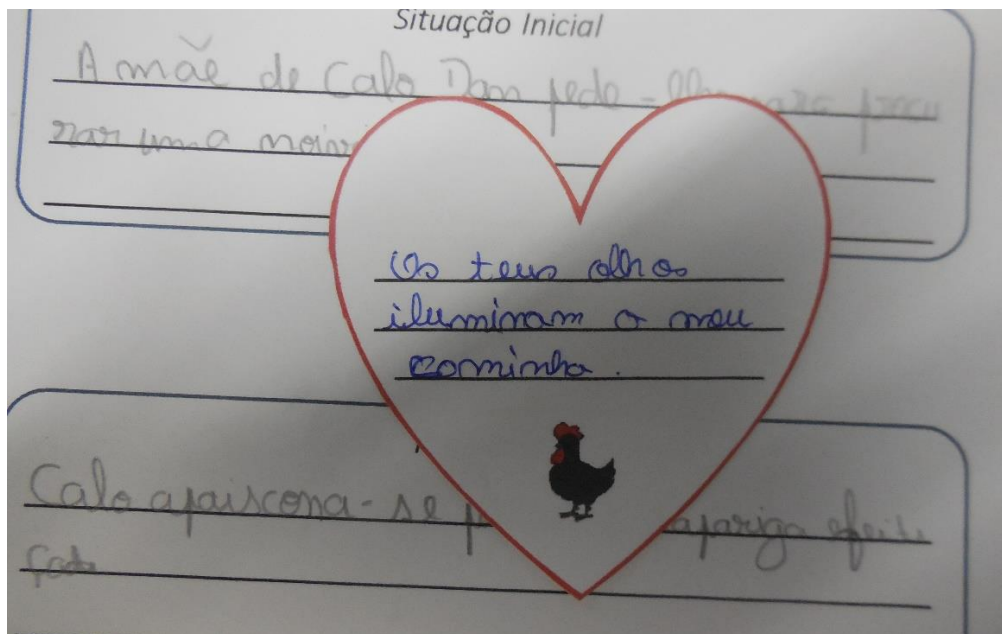 Situação Inicial
A mãe de Calo Dam pede-lhe para procu
rar uma
Os teus olhos
iluminam o meu
cominho.
Calo apaiscona-se
apariga efeiti
çada